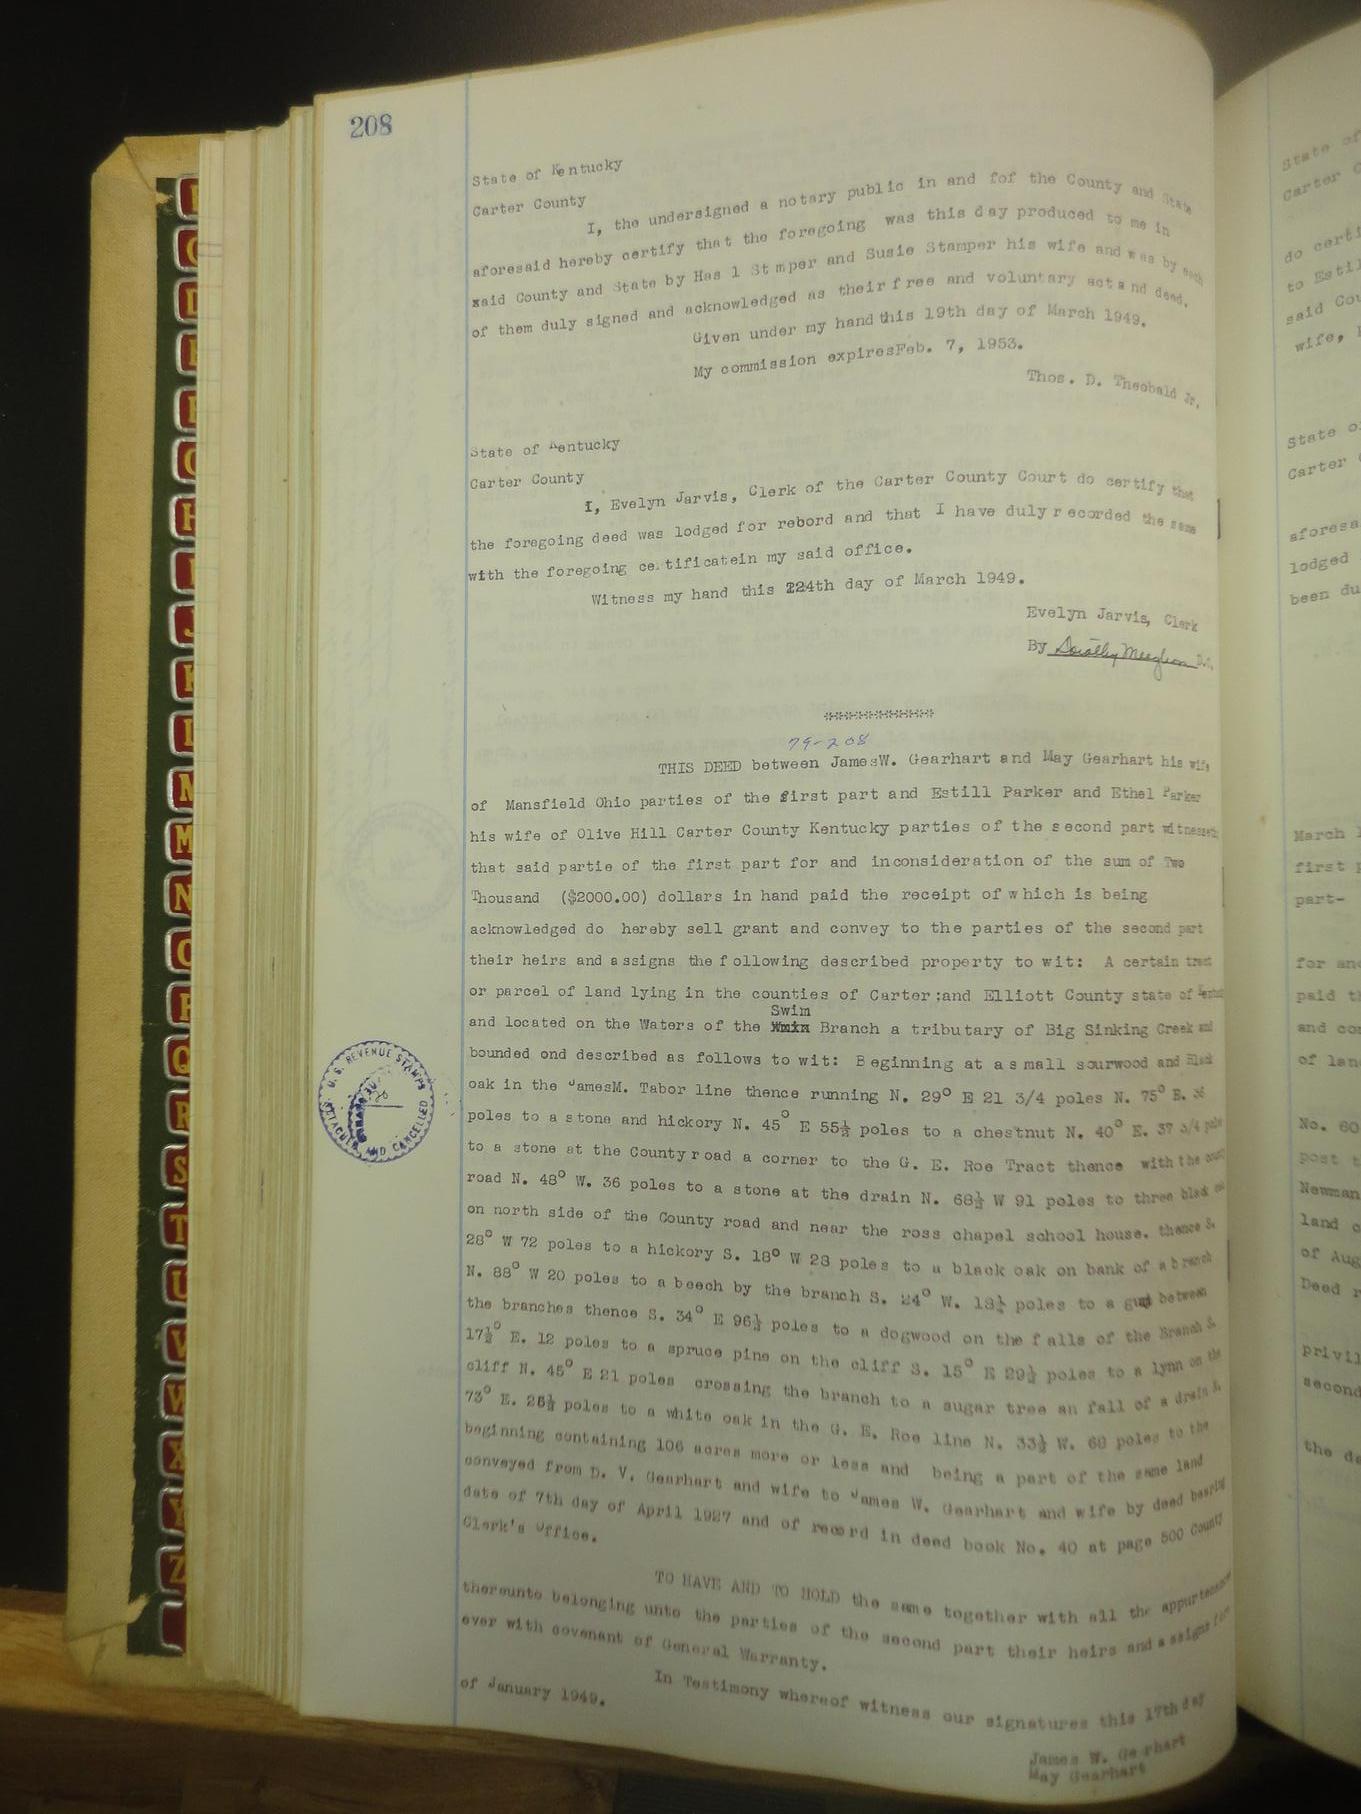 208
State of Kentucky
Carter County
I, the undersigned a notary public in and fof the County and State
aforesaid hereby certify that the foregoing was this day produced to me in
said County and State by Has l St mper and Susie Stamper his wife and was by each
of them duly signed and acknowledged as their free and voluntary act and deed.
Given under my hand this 19th day of March 1949.
My commission expires Feb. 7, 1953.
Thos. D. Theobald Jr.
State of Kentucky
Carter County
I, Evelyn Jarvis, Clerk of the Carter County Court do certify that
the foregoing deed was lodged for rebord and that I have duly recorded the same
with the foregoing ce.tificatein my said office.
Witness my hand this 224th day of March 1949.
Evelyn Jarvis, Clerk
By Dorothy D.C.
***********
79-208
THIS DEED between JamesW. Gearhart and May Gearhart his wife
of Mansfield Ohio parties of the first part and Estill Parker and Ethel Parker
his wife of Olive Hill Carter County Kentucky parties of the second part witnesseth
that said partie of the first part for and inconsideration of the sum of Two
Thousand ($2000.00) dollars in hand paid the receipt of which is being
acknowledged do hereby sell grant and convey to the parties of the second part
their heirs and assigns the following described property to wit: A certain tract
or parcel of land lying in the counties of Carter ;and Elliott County state of Kentucky
Swim
and located on the Waters of the Branch a tributary of Big Sinking Creek and
bounded ond described as follows to wit: Beginning at a small sourwood and Black
oak in the JamesM. Tabor line thence running N. 29° E 21 3/4 poles N. 75° E. 36
poles to a stone and hickory N. 45° E 55½ poles to a chestnut N. 40° E. 37 3/4 poles
to a stone at the County road a corner to the G. E. Roe Tract thence with the county
road N. 48° W. 36 poles to a stone at the drain N. 68½ W 91 poles to three black oak
on north side of the County road and near the ross chapel school house. thence S.
28° W 72 poles to a hickory S. 18° W 28 poles to a black oak on bank of a branch
N. 88° W 20 poles to a beech by the branch S. 24° W. poles to a gum between
the branches thence S. 34° E 96½ poles to a dogwood on the falls of the Branch S.
17½° E. 12 poles to a spruce pine on the cliff S. 15° E 29½ poles to a lynn on the
cliff N. 45° E 21 poles crossing the branch to a sugar tree an fall of a drain S.
73° E. poles to a white oak in the G. E. Roe line N. 33½ W. poles to the
beginning containing 106 acres more or less and being a part of the same land
conveyed from D. V. Gearhart and wife to James W. Gearhart and wife by deed bearing
date of 7th day of April 1927 and of record in deed book No. 40 at page 500 County
Clerk's Office.
TO HAVE AND TO HOLD the same together with all the appurtenances
thereunto belonging unto the parties of the second part their heirs and assigns for
ever with covenant of General Warranty.
In Testimony whereof witness our signatures this 17th day
of January 1949.
James W. Gearhart
May Gearhart
U. S. REVENUE STAMPS
ATTACHED AND CANCELLED
State of
Carter C
do certi
to Estil
said Cou
wife,
State o
Carter
aforesa
lodged
been du
March 1
first p
part-
for and
paid th
and co
of lan
No. 60
post t
Newman
land c
of Aug
Deed r
privil
second
the da
H
I
J
K
L
M
N
O
P
Q
R
S
T
U
V
W
X
Y
Z